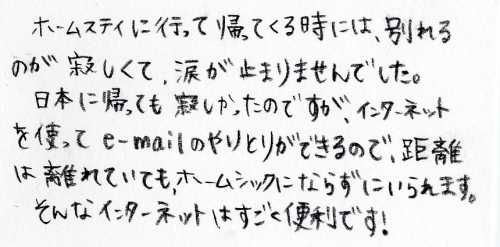 ホームスティに行って帰ってくる時には、別れる
のが寂しくて、涙が止まりませんでした。
日本に帰っても寂しかったのですが、インターネット
を使ってe-mailのやりとりができるので、距離
は離れていても、ホームシックにならずにいられます。
そんなインターネットはすごく便利です!